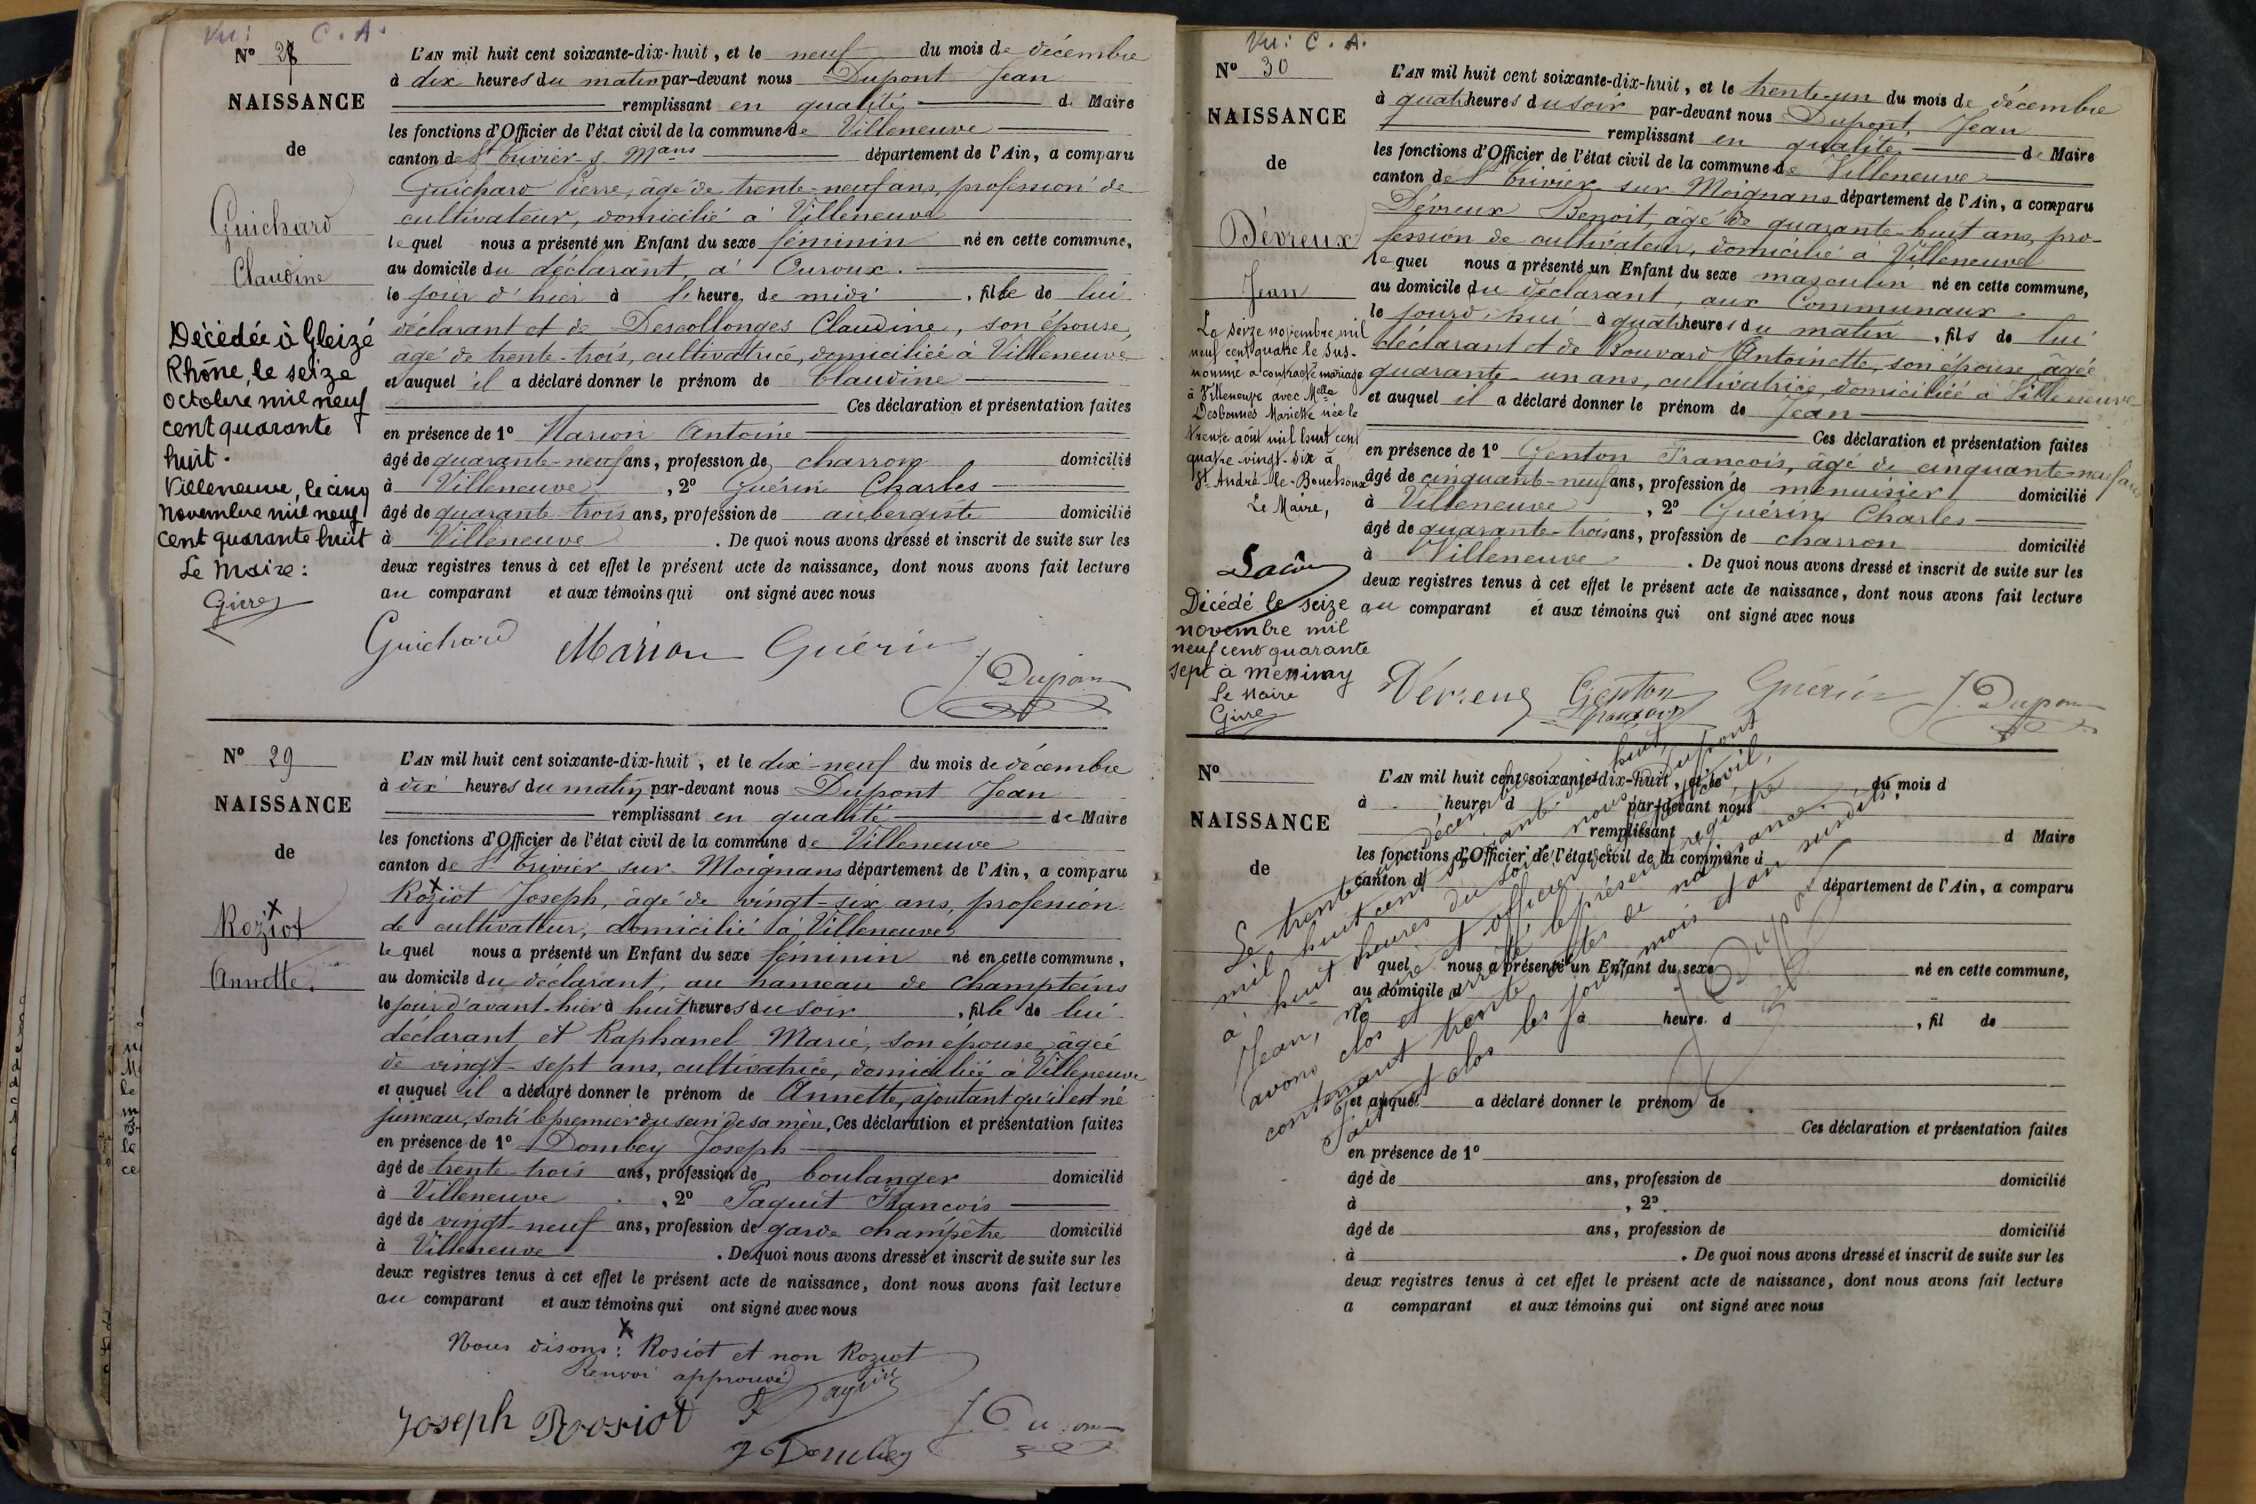 Vu: C. A.
N° 28
NAISSANCE
de
Guichard
Claudine
Décédée à Gleizé
Rhône, le seize
octobre mil neuf
cent quarante
huit.
Villeneuve, le cinq
novembre mil neuf
cent quarante huit
Le Maire:
L'AN mil huit cent soixante-dix-huit, et le neuf du mois de décembre
à dix heures du matin par-devant nous Dupont Jean
remplissant en qualité de Maire
les fonctions d'Officier de l'état civil de la commune de Villeneuve
canton de St Trivier-s. Mans département de l'Ain, a comparu
Guichard Pierre, âgé de trente-neuf ans, profession de
cultivateur, domicilié à Villeneuve
lequel nous a présenté un Enfant du sexe féminin né en cette commune,
au domicile du déclarant, à Ouroux.
le jour d'hier à l'heure de midi, fille de lui
déclarant et de Descollonges Claudine, son épouse,
âgé de trente-trois, cultivatrice, domiciliée à Villeneuve
et auquel il a déclaré donner le prénom de Claudine
Ces déclaration et présentation faites
en présence de 1° Marion Antoine
âgé de quarante-neuf ans, profession de charron domicilié
à Villeneuve, 2° Guérin Charles
âgé de quarante-trois ans, profession de aubergiste domicilié
à Villeneuve. De quoi nous avons dressé et inscrit de suite sur les
deux registres tenus à cet effet le présent acte de naissance, dont nous avons fait lecture
au comparant et aux témoins qui ont signé avec nous
Guichard Marion Guérin
J. Dupont
N° 29
NAISSANCE
de
Roziot
Annette.
L'AN mil huit cent soixante-dix-huit, et le dix-neuf du mois de décembre
à dix heures du matin, par-devant nous Dupont Jean
remplissant en qualité de Maire
les fonctions d'Officier de l'état civil de la commune de Villeneuve
canton de St Trivier sur Moignans département de l'Ain, a comparu
Roziot Joseph, âgé de vingt-six ans, profession
de cultivateur, domicilié à Villeneuve
lequel nous a présenté un Enfant du sexe féminin né en cette commune,
au domicile du déclarant, au hameau de Champteins
le jour d'avant-hier à huit heures du soir, fille de lui
déclarant, et Raphanel Marie, son épouse, âgée
de vingt-sept ans, cultivatrice, domiciliée à Villeneuve
et auquel il a déclaré donner le prénom de Annette, ajoutant qu'il est né
jumeau, sorti le premier du sein de sa mère, Ces déclaration et présentation faites
en présence de 1° Dombey Joseph
âgé de trente-trois ans, profession de boulanger domicilié
à Villeneuve, 2° Paquit François
âgé de vingt-neuf ans, profession de garde champêtre domicilié
à Villeneuve. De quoi nous avons dressé et inscrit de suite sur les
deux registres tenus à cet effet le présent acte de naissance, dont nous avons fait lecture
au comparant et aux témoins qui ont signé avec nous
x Nous disons: Rosiot et non Roziot
Renvoi approuvé
Joseph Rosiot
J Dombey
Vu: C. A.
N° 30
NAISSANCE
de
Dévreux
Jean
Le seize novembre mil
neuf cent quatre le sus-
nommé a contracté mariage
à Villeneuve avec Melle
Desbonnes Mariette née le
trente août mil huit cent
quatre-vingt-six à
St André-le-Bouchoux
Le Maire,
Décédé le seize
novembre mil
neuf cent quarante
sept à Messimy
Le Maire
L'AN mil huit cent soixante-dix-huit, et le trente-un du mois de décembre
à quatre heures du soir par-devant nous Dupont Jean
remplissant en qualité de Maire
les fonctions d'Officier de l'état civil de la commune de Villeneuve
canton de St Trivier sur Moignans département de l'Ain, a comparu
Dévreux Benoit, âgé de quarante-huit ans, pro-
fession de cultivateur, domicilié à Villeneuve
lequel nous a présenté un Enfant du sexe masculin né en cette commune,
au domicile du déclarant, aux Communaux.
le jourd'hui à quatre heures du matin, fils de lui
déclarant et de Bouvard Antoinette, son épouse, âgée
quarante-un ans, cultivatrice, domiciliée à Villeneuve
et auquel il a déclaré donner le prénom de Jean
Ces déclaration et présentation faites
en présence de 1° Genton François, âgé de cinquante-neuf ans
âgé de cinquante-neuf ans, profession de menuisier domicilié
à Villeneuve, 2° Guérin Charles
âgé de quarante-trois ans, profession de charron domicilié
à Villeneuve. De quoi nous avons dressé et inscrit de suite sur les
deux registres tenus à cet effet le présent acte de naissance, dont nous avons fait lecture
au comparant et aux témoins qui ont signé avec nous
Genton Guérin J. Dupont
françois
N°
NAISSANCE
de
L'AN mil huit cent soixante-dix-huit, et le du mois d
à heures d par-devant nous
remplissant d Maire
les fonctions d'Officier de l'état civil de la commune d
canton d département de l'Ain, a comparu
quel nous a présenté un Enfant du sexe né en cette commune,
au domicile d
le à heure d, fil de
et auquel a déclaré donner le prénom de
Ces déclaration et présentation faites
en présence de 1°
âgé de ans, profession de domicilié
à, 2°
âgé de ans, profession de domicilié
à. De quoi nous avons dressé et inscrit de suite sur les
deux registres tenus à cet effet le présent acte de naissance, dont nous avons fait lecture
a comparant et aux témoins qui ont signé avec nous
Le trente un décembre
mil huit cent soixante-dix huit,
à huit heures du soir, nous Dupont
Jean, maire et officier de l'état civil,
avons clos et arrêté le présent registre
contenant trente actes de naissance.
Fait et clos les jour, mois et an susdits.
J Dupont